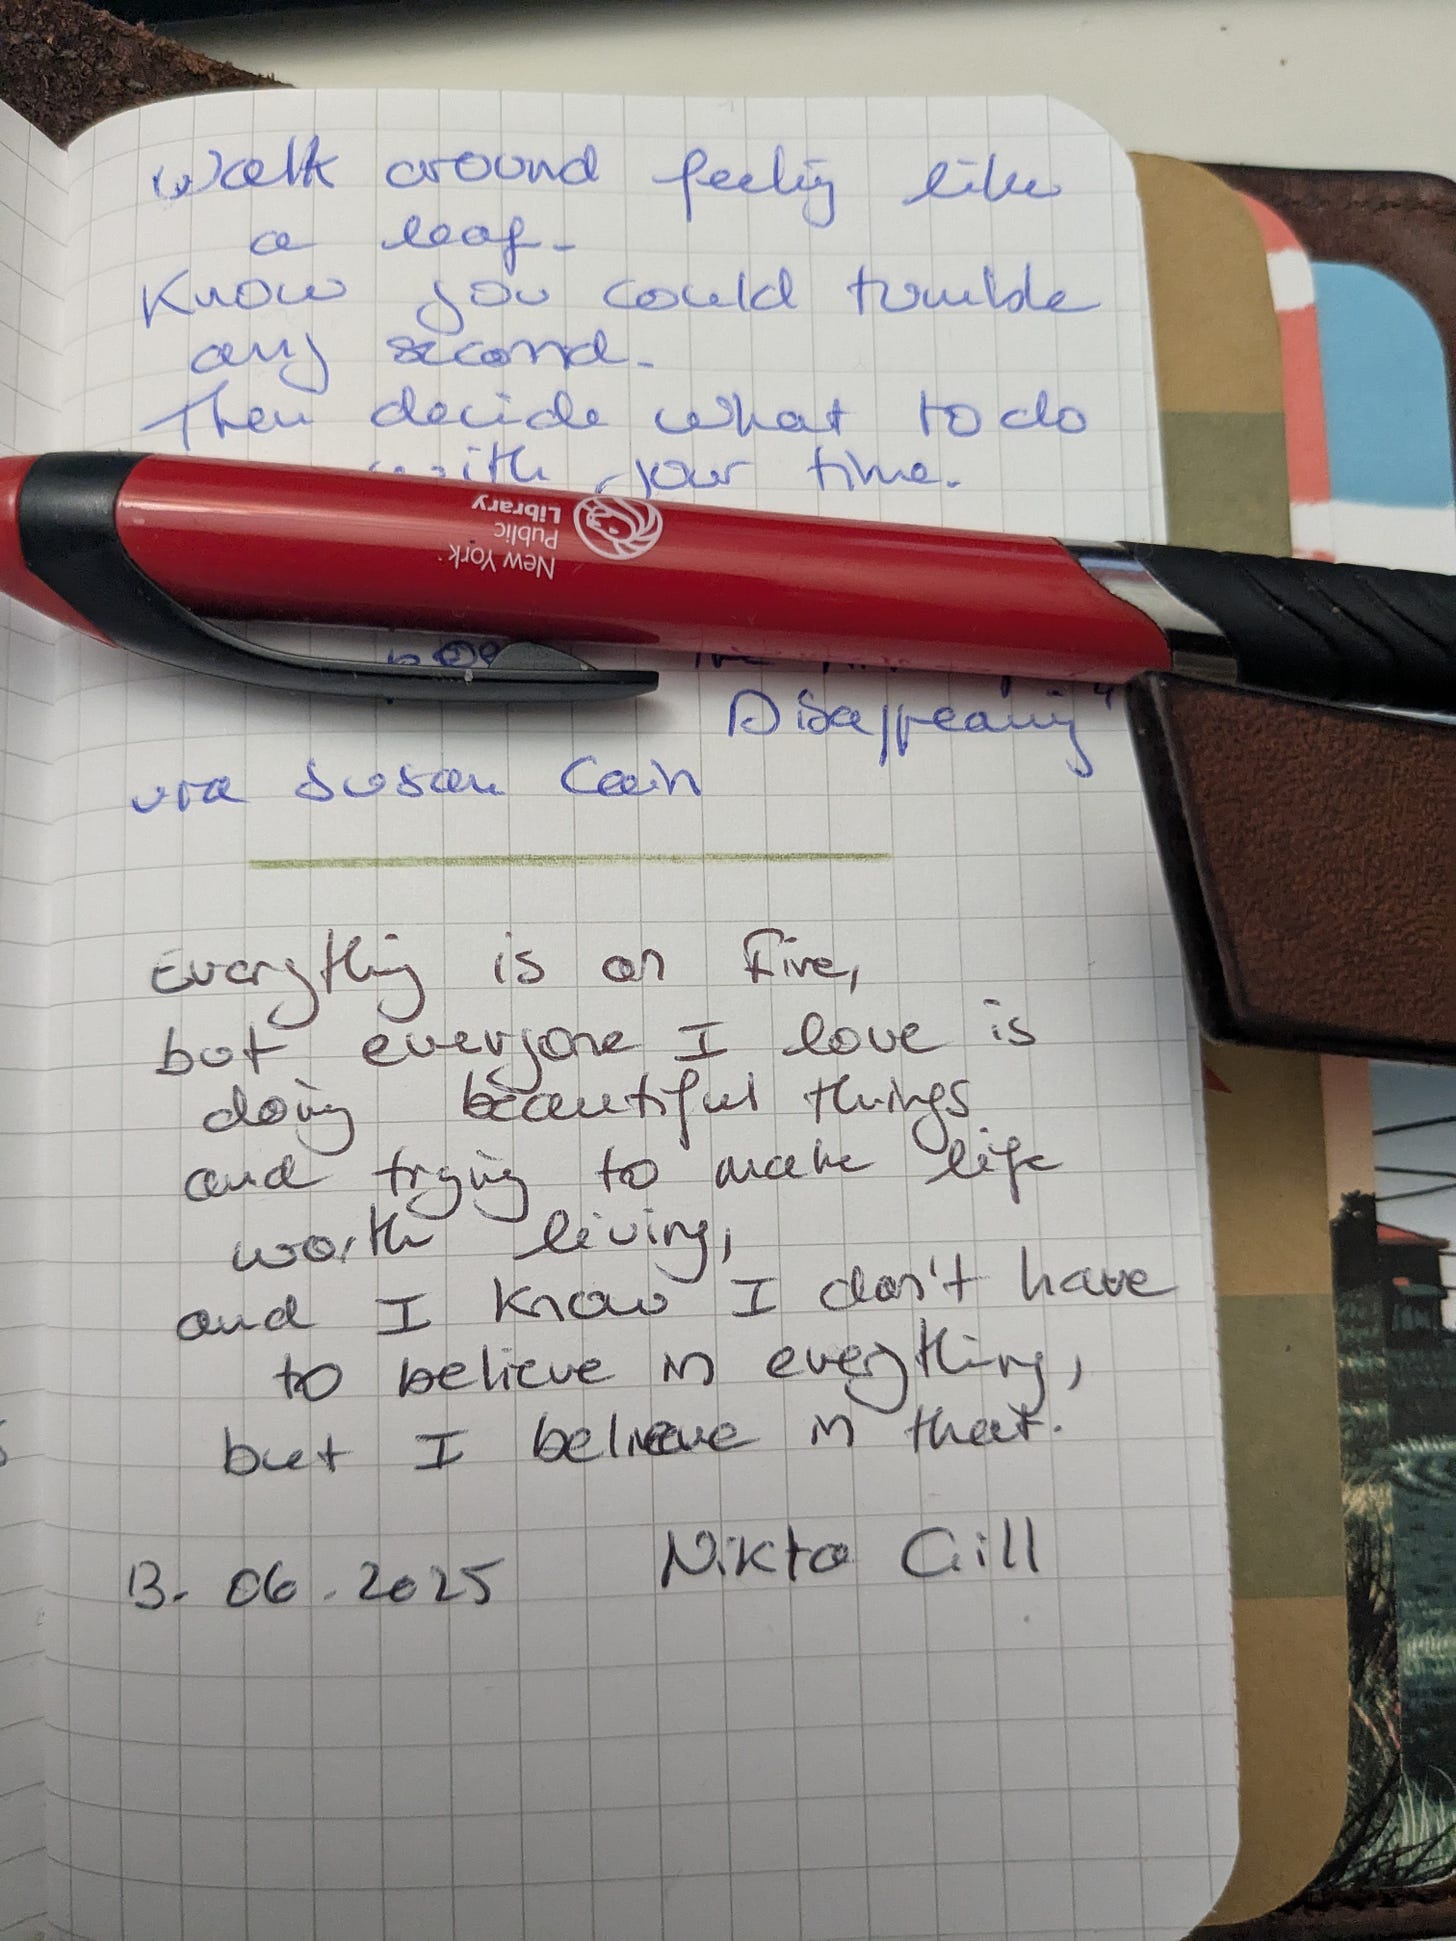 Walk around feeling like
a leaf.
Know you could tumble
any second.
Then decide what to do
with your time.
New York
Public
Library
Disappearing"
via Susan Cain
Everything is on Fire,
but everyone I love is
doing beautiful things
and trying to make life
worth living,
and I know I don't have
to believe in everything,
but I believe in that.
13. 06. 2025 Nikta Gill